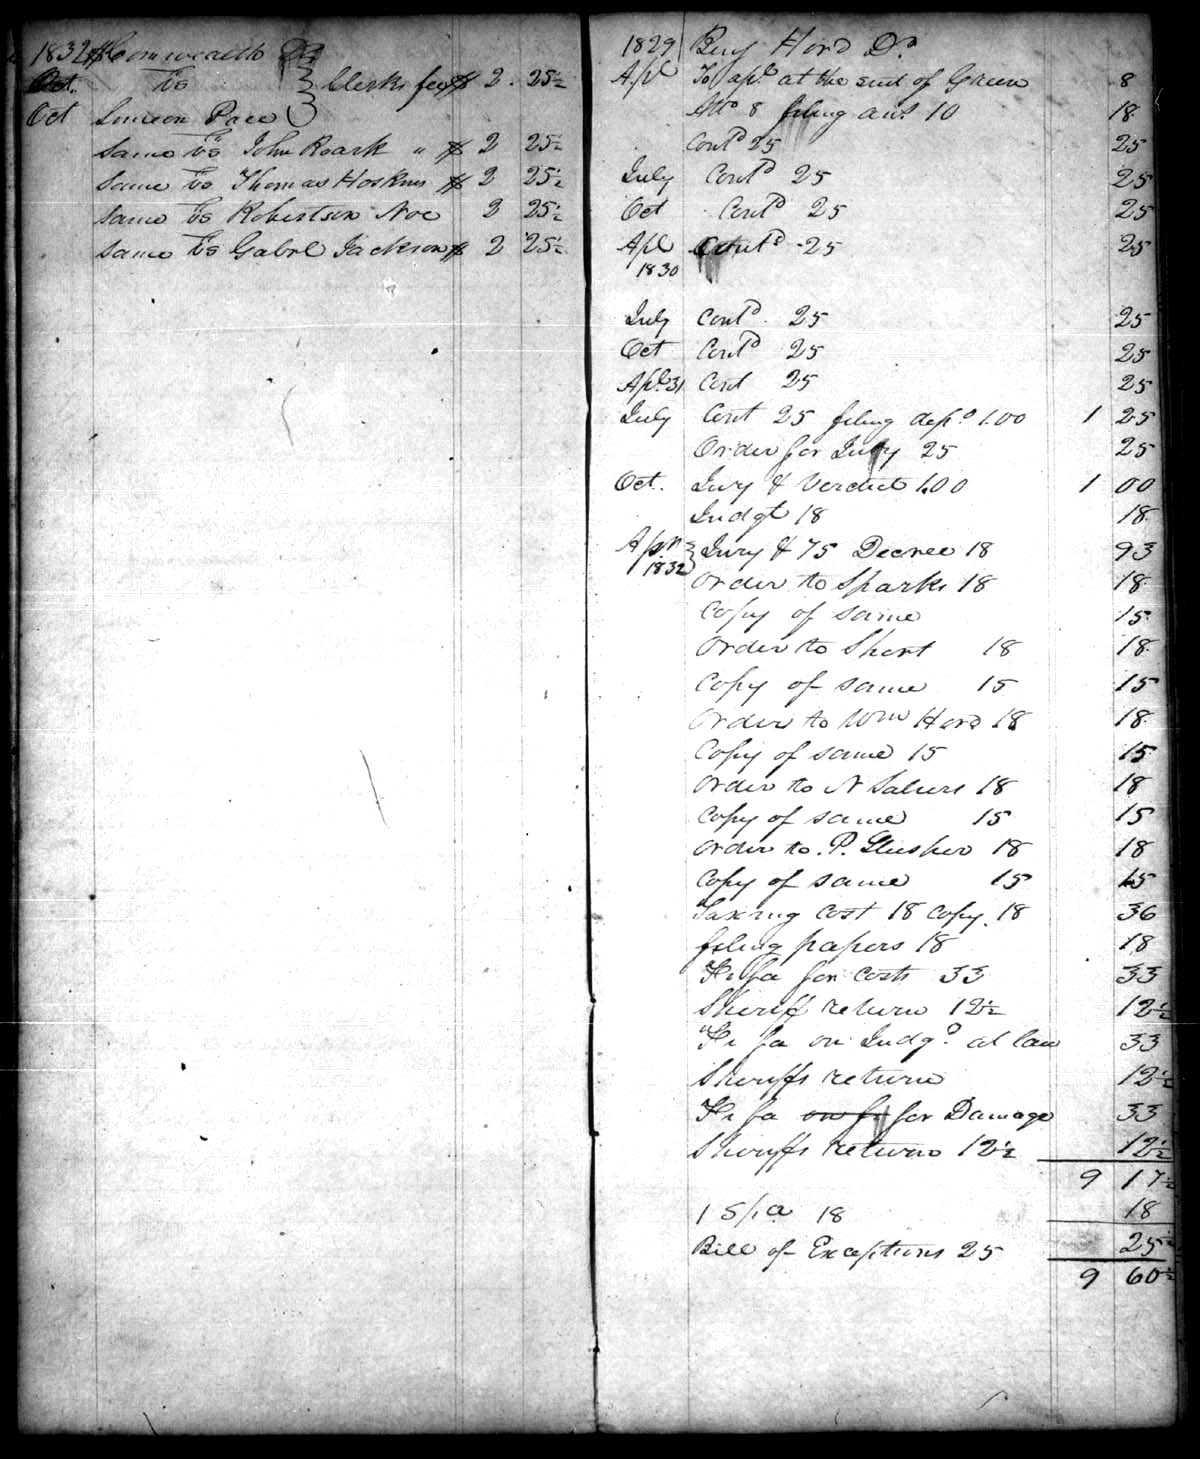 1832 Comwealth Dr
Oct. vs } Clerks fee $ 2. 25½
Oct Simeon Pace
Same vs John Roark " $ 2 25½
Same vs Thomas Hoskins $ 2 25½
Same vs Robertson Noe 2 25½
Same vs Gabrl Jackson $ 2 25½
1829 Benj Hord Dr
Apl To apl at the suit of Green 8
Atto 8 filing ans 10 18
Contd 25 25
July Contd 25 25
Oct Contd 25 25
Apl Contd 25 25
1830
July Contd 25 25
Oct Contd 25 25
Apl 31 Cont 25 25
July Cont 25 filing depo 1.00 1 25
Order for Jury 25 25
Oct. Jury & Verdict 1.00 1 00
Judgt 18 18
Apr } Jury & 75 Decree 18 93
1832 Order to Sparks 18 18
Copy of same 15
Order to Short 18 18
Copy of same 15 15
Order to Wm Hord 18 18
Copy of same 15 15
Order to N 18 18
Copy of same 15 15
Order to P. Slusher 18 18
Copy of same 15 15
Taxing cost 18 copy 18 36
filing papers 18 18
Fi fa for costs 33 33
Sheriff return 12½ 12½
Fi fa on Judgt at law 33
Sheriffs return 12½
Fi fa on fi for Damage 33
Sheriffs return 12½ 12½
9 17½
1 Spa 18 18
Bill of Exceptions 25 25
9 60½